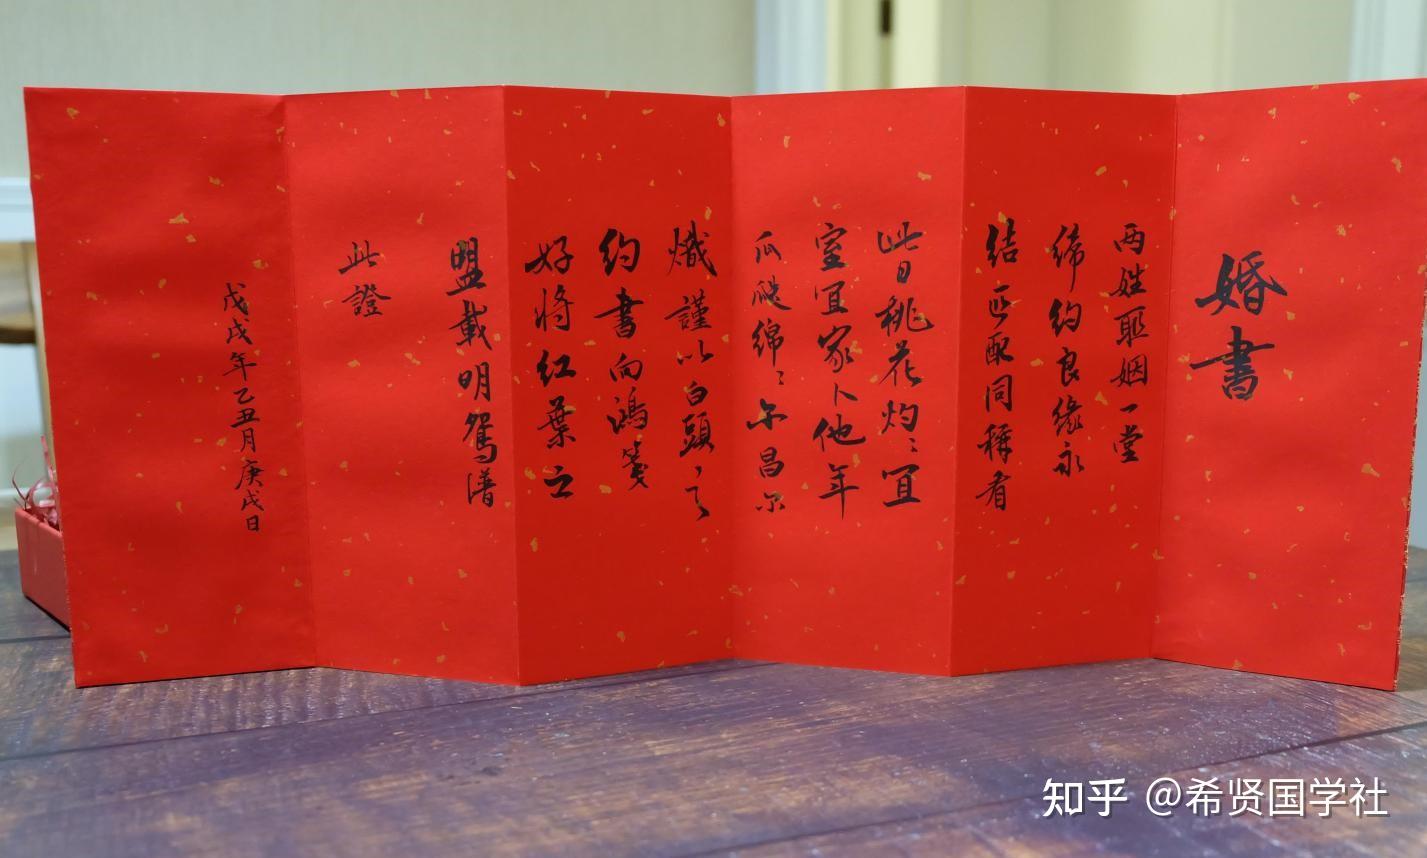 婚書
两姓联姻一堂
缔约良缘永
结匹配同稱看
此日桃花灼々宜
室宜家卜他年
瓜瓞绵々尔昌尔
熾謹以白頭之
约書向鴻箋
好将红葉之
盟載明鸳譜
此證
戊戌年乙丑月庚戌日
知乎 @希贤国学社